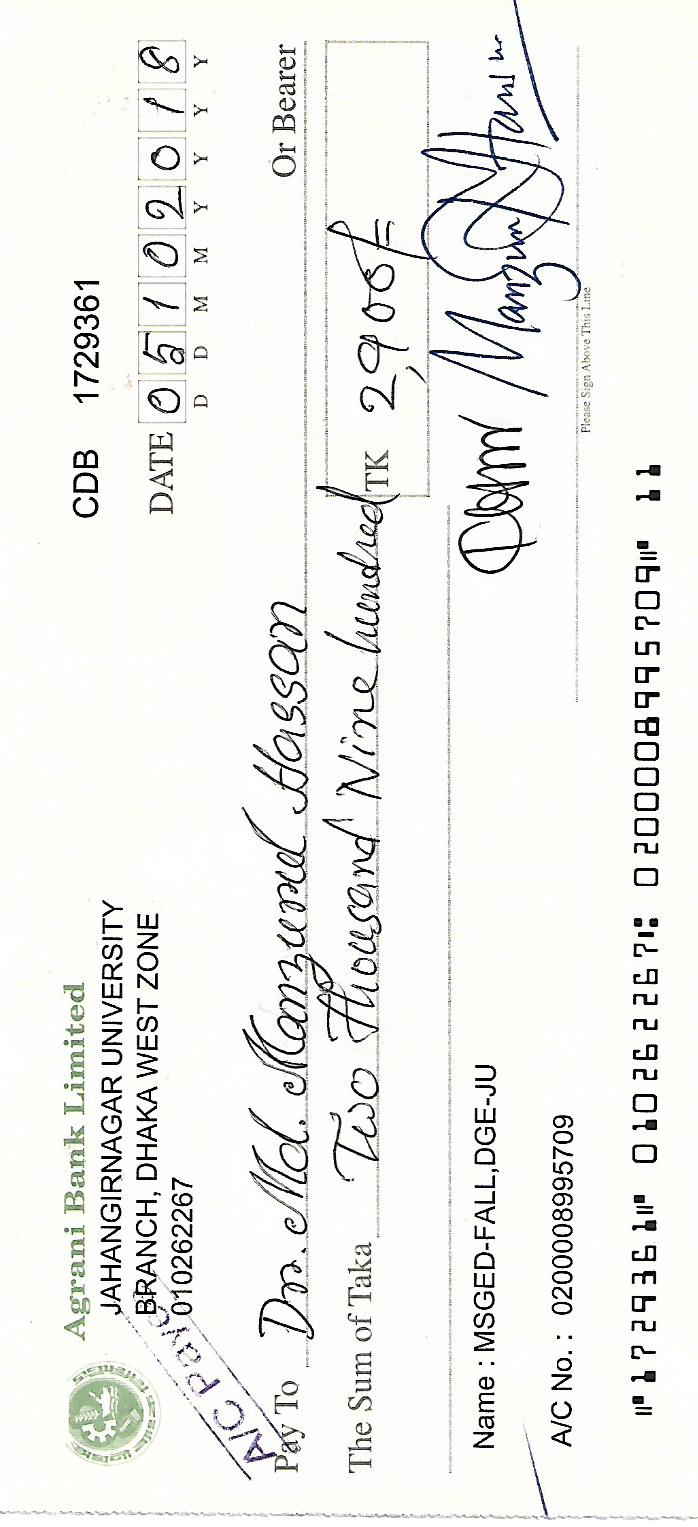 Agrani Bank Limited
JAHANGIRNAGAR UNIVERSITY
BRANCH, DHAKA WEST ZONE
010262267
CDB 1729361
DATE 05102018
D D M M Y Y Y Y
A/C Payee
Pay To Dr. Md. Manzurul Hassan Or Bearer
The Sum of Taka Two Thousand Nine hundred
TK 2,900/=
Name : MSGED-FALL,DGE-JU
A/C No. : 0200008995709
Manzurul Hassan
Please Sign Above This Line
⑈1729361⑈ 010262267⑆ 0200008995709⑈ 11